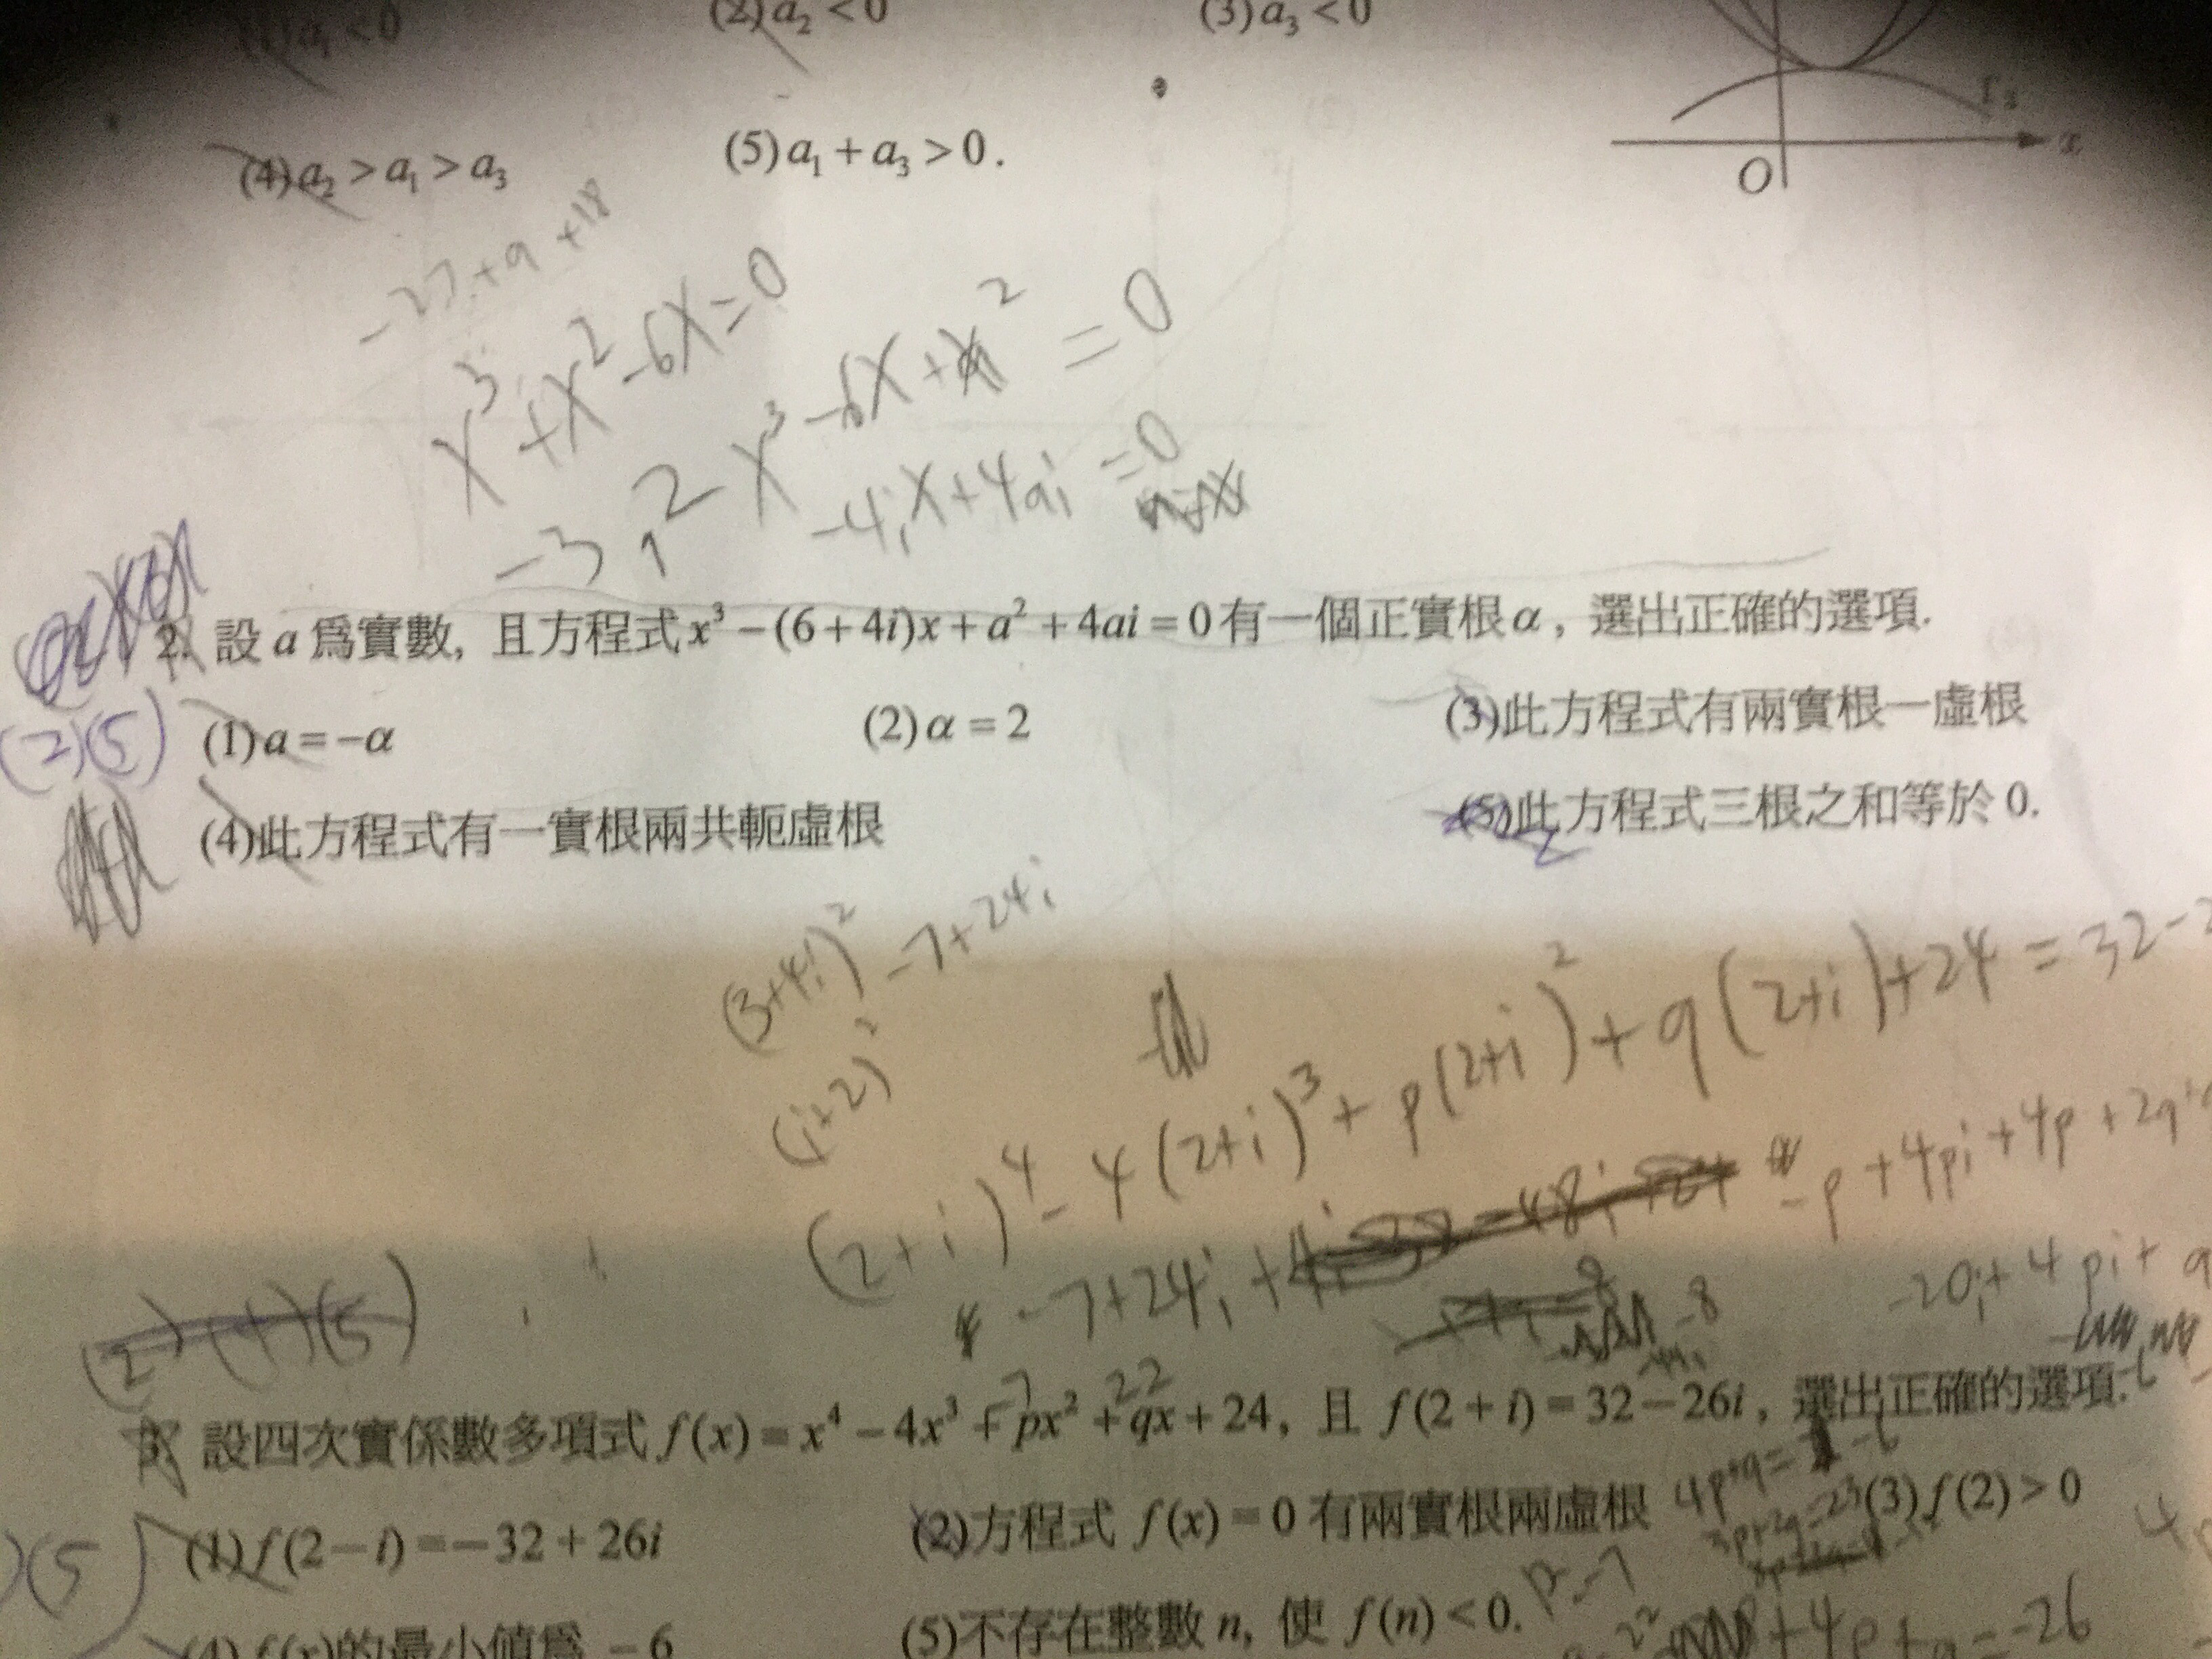 (1) a₁ < 0 (2) a₂ < 0 (3) a₃ < 0
(4) a₂ > a₁ > a₃ (5) a₁ + a₃ > 0.
Γ₃
x
O
-27+9+18
x³+x²-6x=0
-3, 2
x³-6x+x²=0
-4ix+4ai=0
2. 設 a 為實數, 且方程式 x³ − (6 + 4i)x + a² + 4ai = 0 有一個正實根 α, 選出正確的選項.
(2)(5)
(1) a = −α (2) α = 2 (3)此方程式有兩實根一虛根
(4)此方程式有一實根兩共軛虛根 (5)此方程式三根之和等於 0.
(3+4i)² -7+24i
(i+2)²
(2+i)⁴ - 4(2+i)³ + p(2+i)² + q(2+i)+24 = 32-2
-7+24i -p+4pi+4p+2q
-8
-20i+4pi+q
(2)(4)(5)
-7 22
設四次實係數多項式 f(x) = x⁴ − 4x³ + px² + qx + 24, 且 f(2 + i) = 32 − 26i, 選出正確的選項.
4p+q=
(1) f(2 − i) = −32 + 26i (2)方程式 f(x) = 0 有兩實根兩虛根 (3) f(2) > 0
)(5)
(4) f(x)的最小值為 −6 (5)不存在整數 n, 使 f(n) < 0.
p=-7
+4p+q=-26